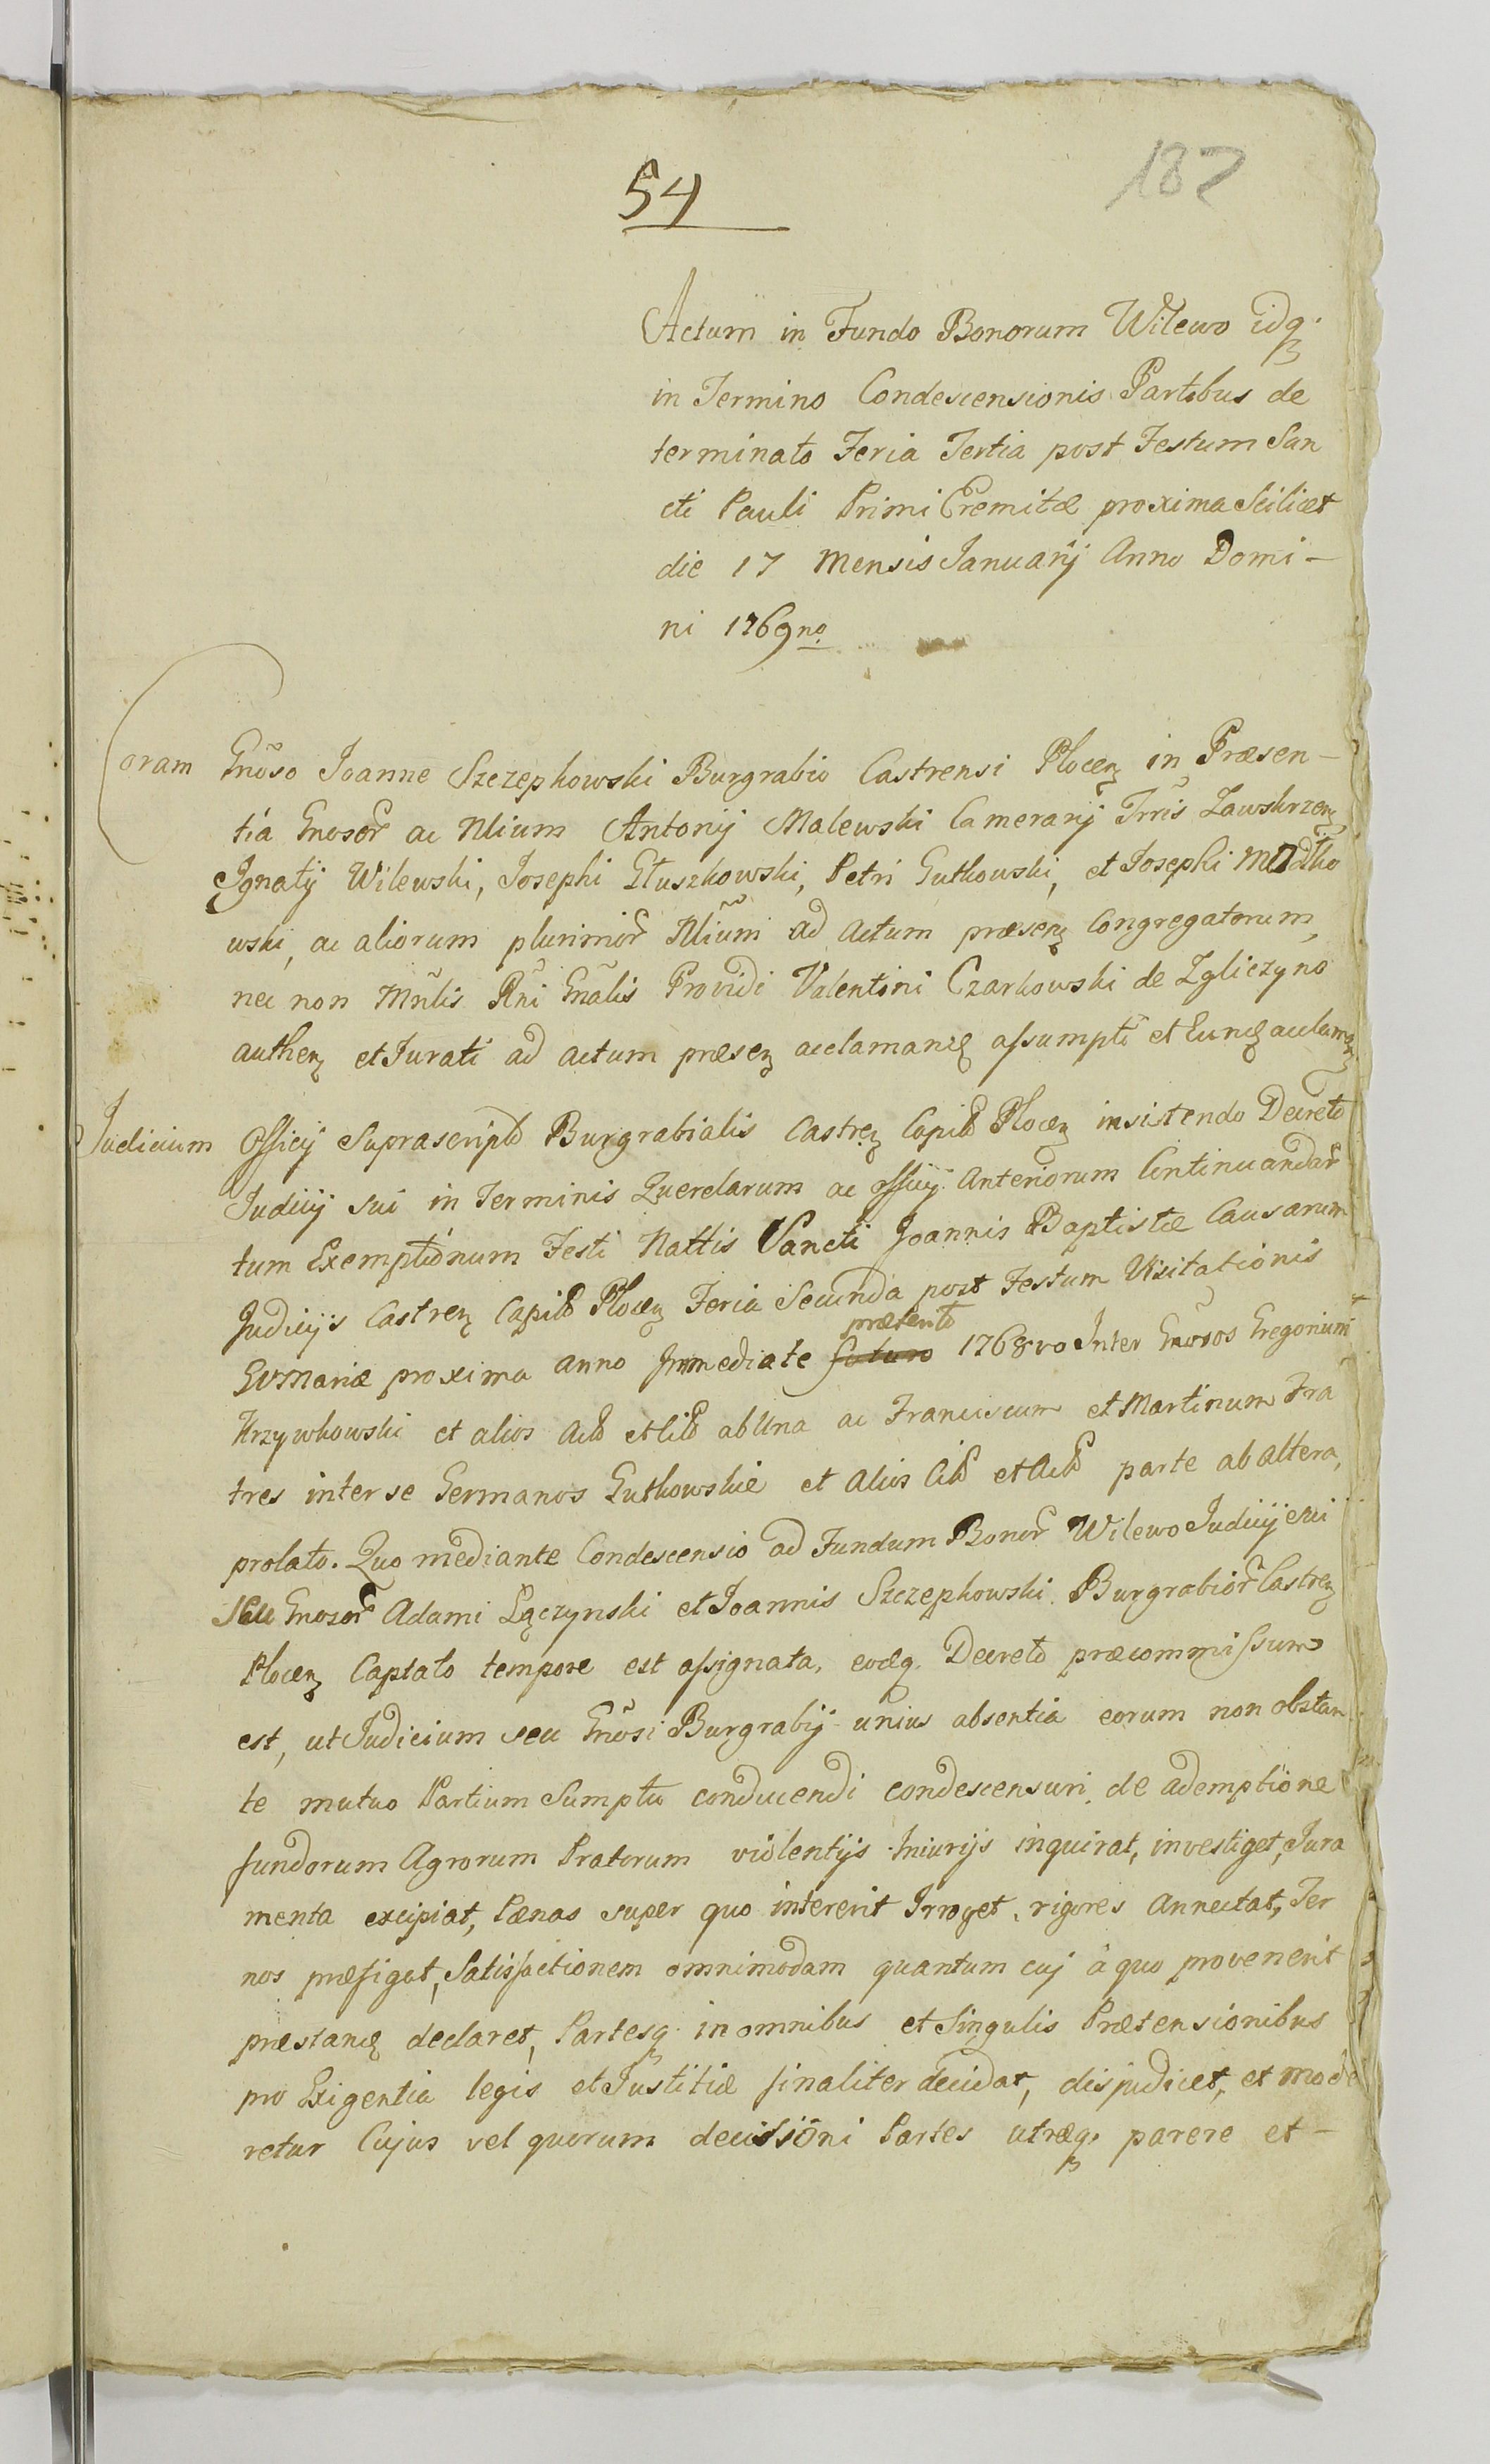 54
187
Actum in Fundo Bonorum Wilewo idq;
in Termino Condescensionis Partibus de
terminato Feria Tertia post Festum San
cti Pauli Primi Eremitæ proxima Scilicet
die 17 Mensis Januarij Anno Domi-
ni 1769no
Coram Gnõso Joanne Szczepkowski Burgrabio Castrensi Plocen in Præsen-
tia Gnosor ac Nlium Antonij Malewski Camerarij Trris Zawskrzen
Ignatij Wilewski, Josephi Głuszkowski, Petri Gutkowski, et Josephi Modtko
wski, ac aliorum plurimor Nlium ad Actum præsen Congregatorum,
nec non Mnlis Rni Gnalis Providi Valentini Czarkowski de Zgliczyno
authen et Jurati ad actum præsen acclamand assumpti et Eund acclaman
Judicium Officij Suprascripti Burgrabialis Castren Caplis Plocen insistendo Decreto
Judicij sui in Terminis Querelarum ac officij Anteriorum Continuandar
tum Exemptionum Festi Nattis Sancti Joannis Baptistæ Causarum
Judicijs Castren Caplis Plocen Feria Secunda post Festum Visitationis
BVMariæ proxima anno Immediate futuro præterito 1768vo Inter Gnosos Gregorium
Krzywkowski et alios Acto et Cito ab Una ac Franciscum et Martinum Fra
tres inter se Germanos Gutkowskie et Alios Cito et Acto parte ab altera,
prolato. Quo mediante Condescensio ad Fundum Bonor Wilewo Judicij sui
seu Gnosor Adami Łączynski et Joannis Szczepkowski Burgrabior Castren
Plocen Captato tempore est assignata, eodq. Decreto præcommissum
est, ut Judicium seu Gnõsi Burgrabij unius absentia eorum non obstan
te mutuo Partium Sumptu conducendi condescensuri, de ademptione
fundorum Agrorum Pratorum violentijs Iniurijs inquirat, investiget, Jura
menta excipiat, Pænas super quo intererit Irroget, rigores Annectat, Ter
nos præfigat, Satisfactionem omnimodam quantum cuj à quo provenerit
præstand declaret, Partesq; in omnibus et Singulis Prætensionibus
pro Exigentia legis et Justitiæ finaliter decidat, disjudicet, et mode
retur Cujus vel quorum decissioni Partes utræq; parere et-